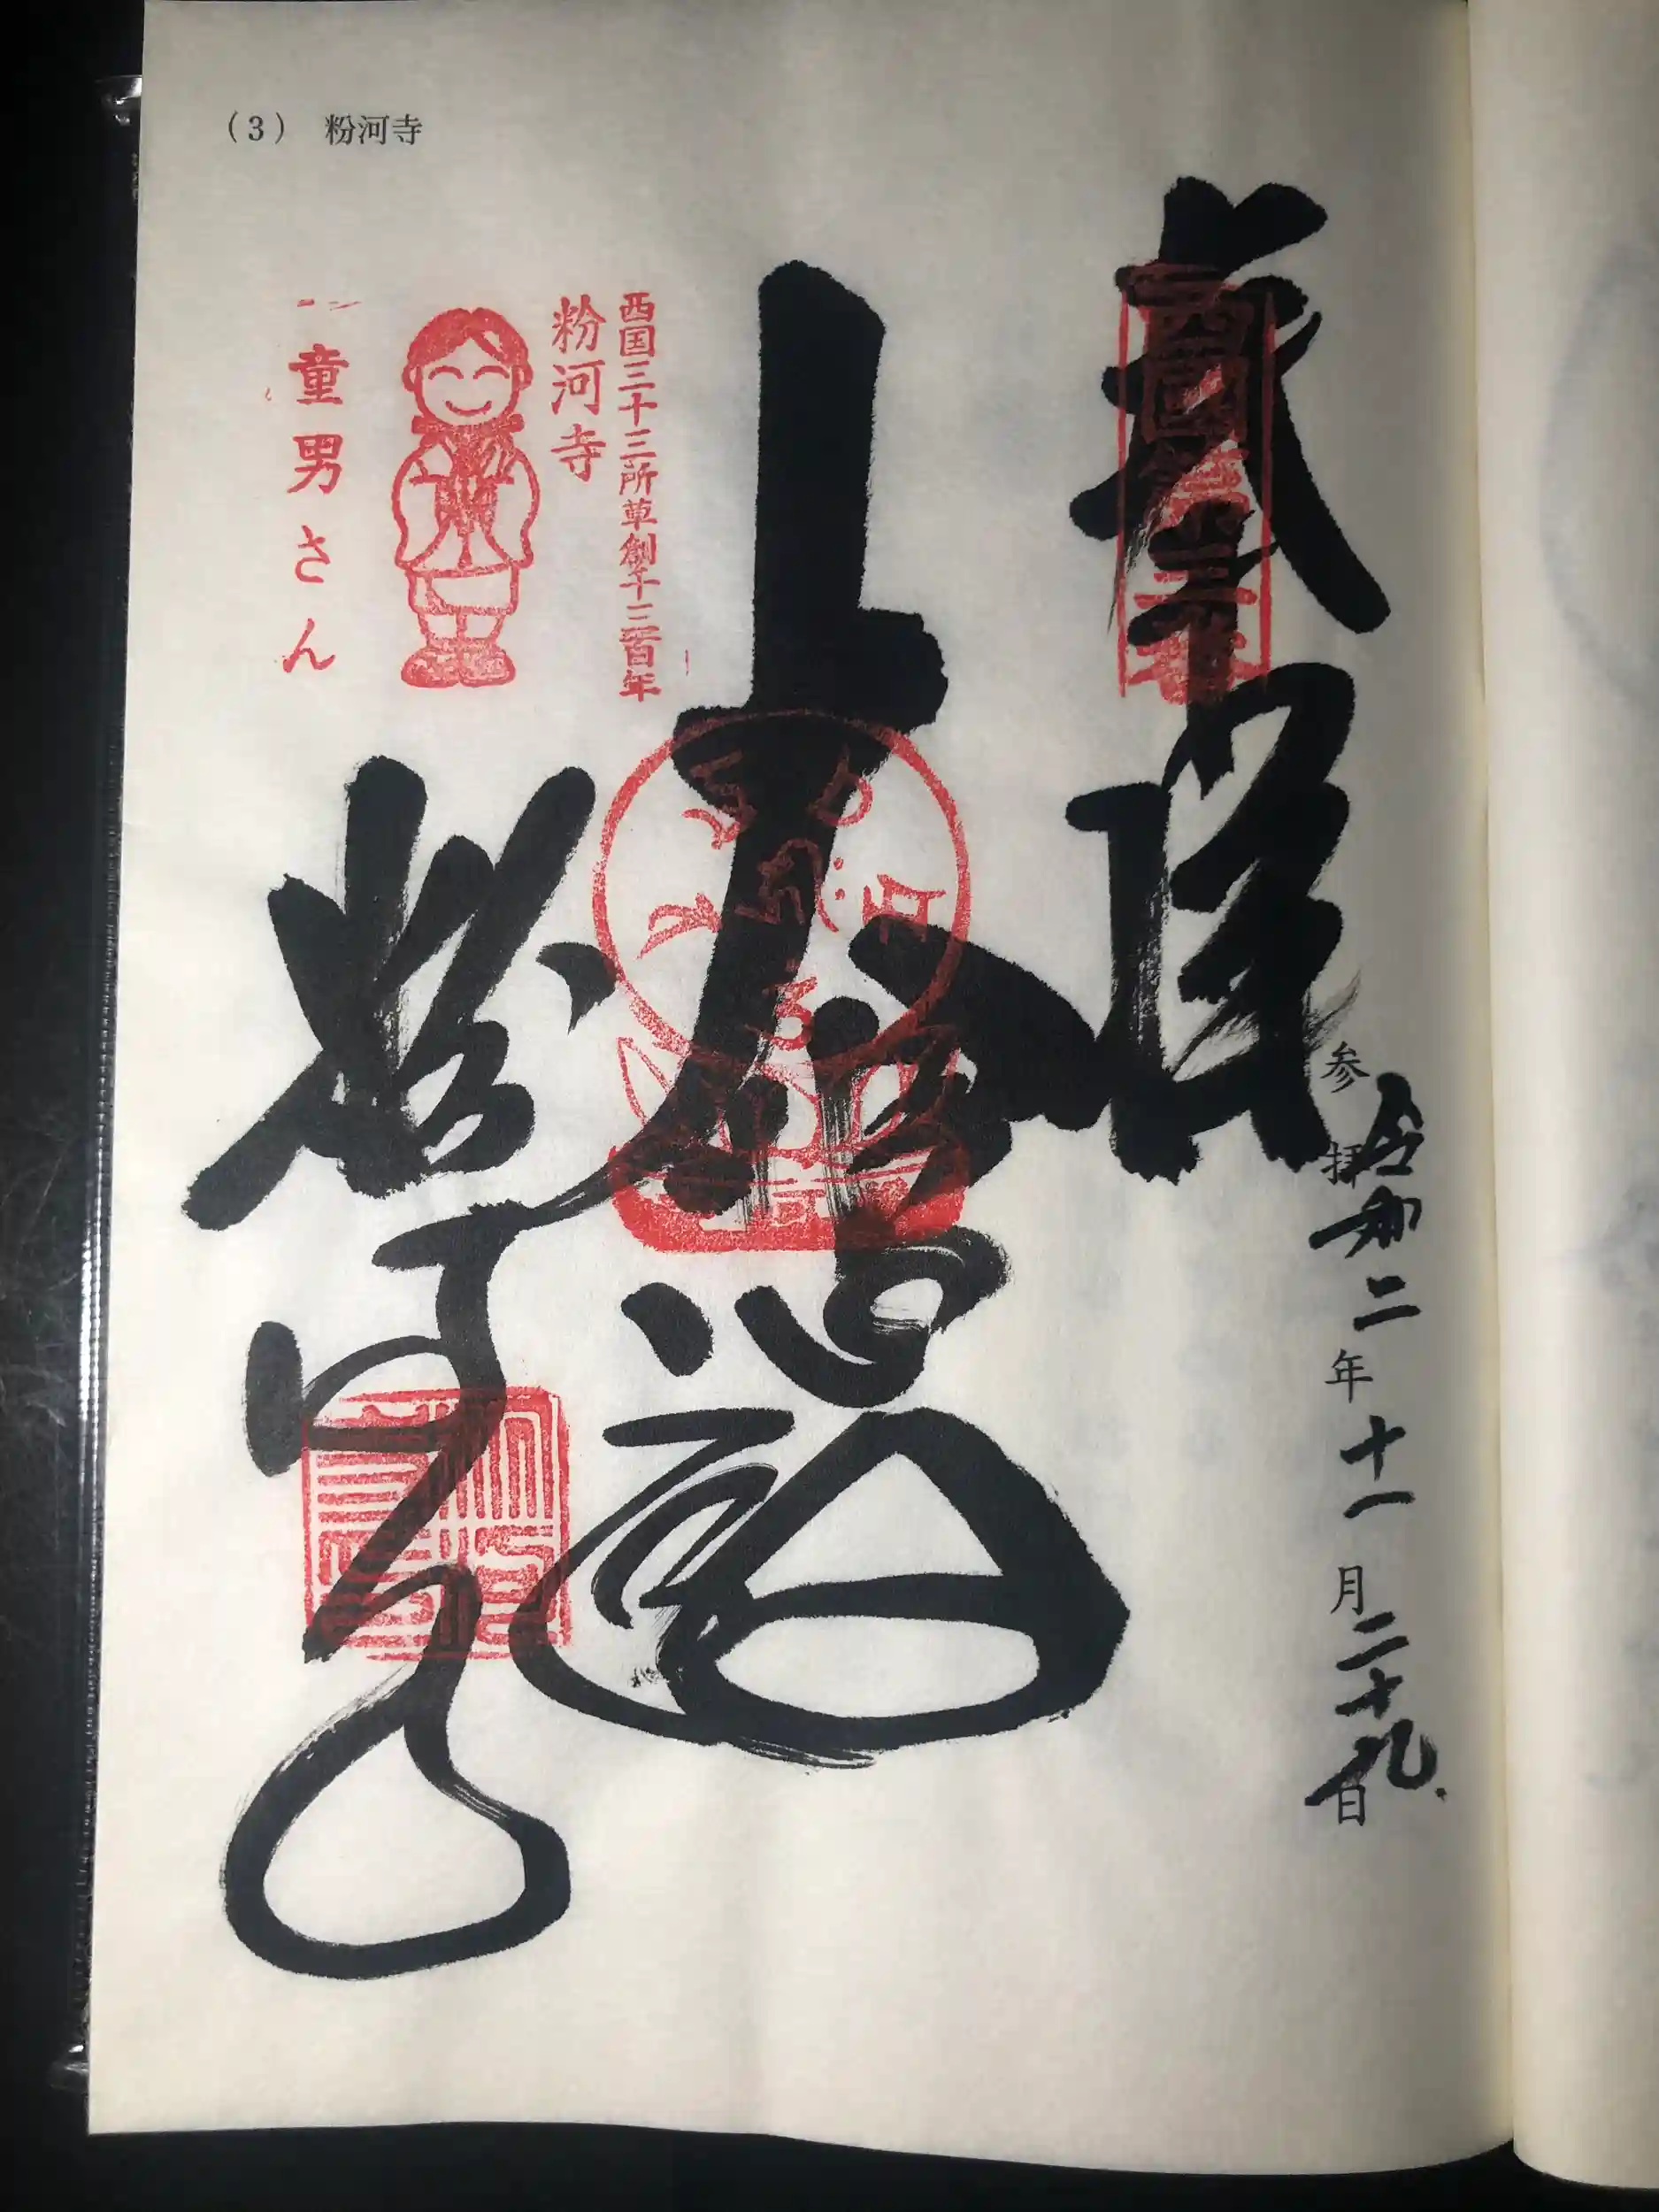 (3) 粉河寺
奉拝
西國第三番
参拝 令和二年十一月二十九日
大悲殿
西国三十三所草創千三百年
粉河寺
童男さん
粉河寺